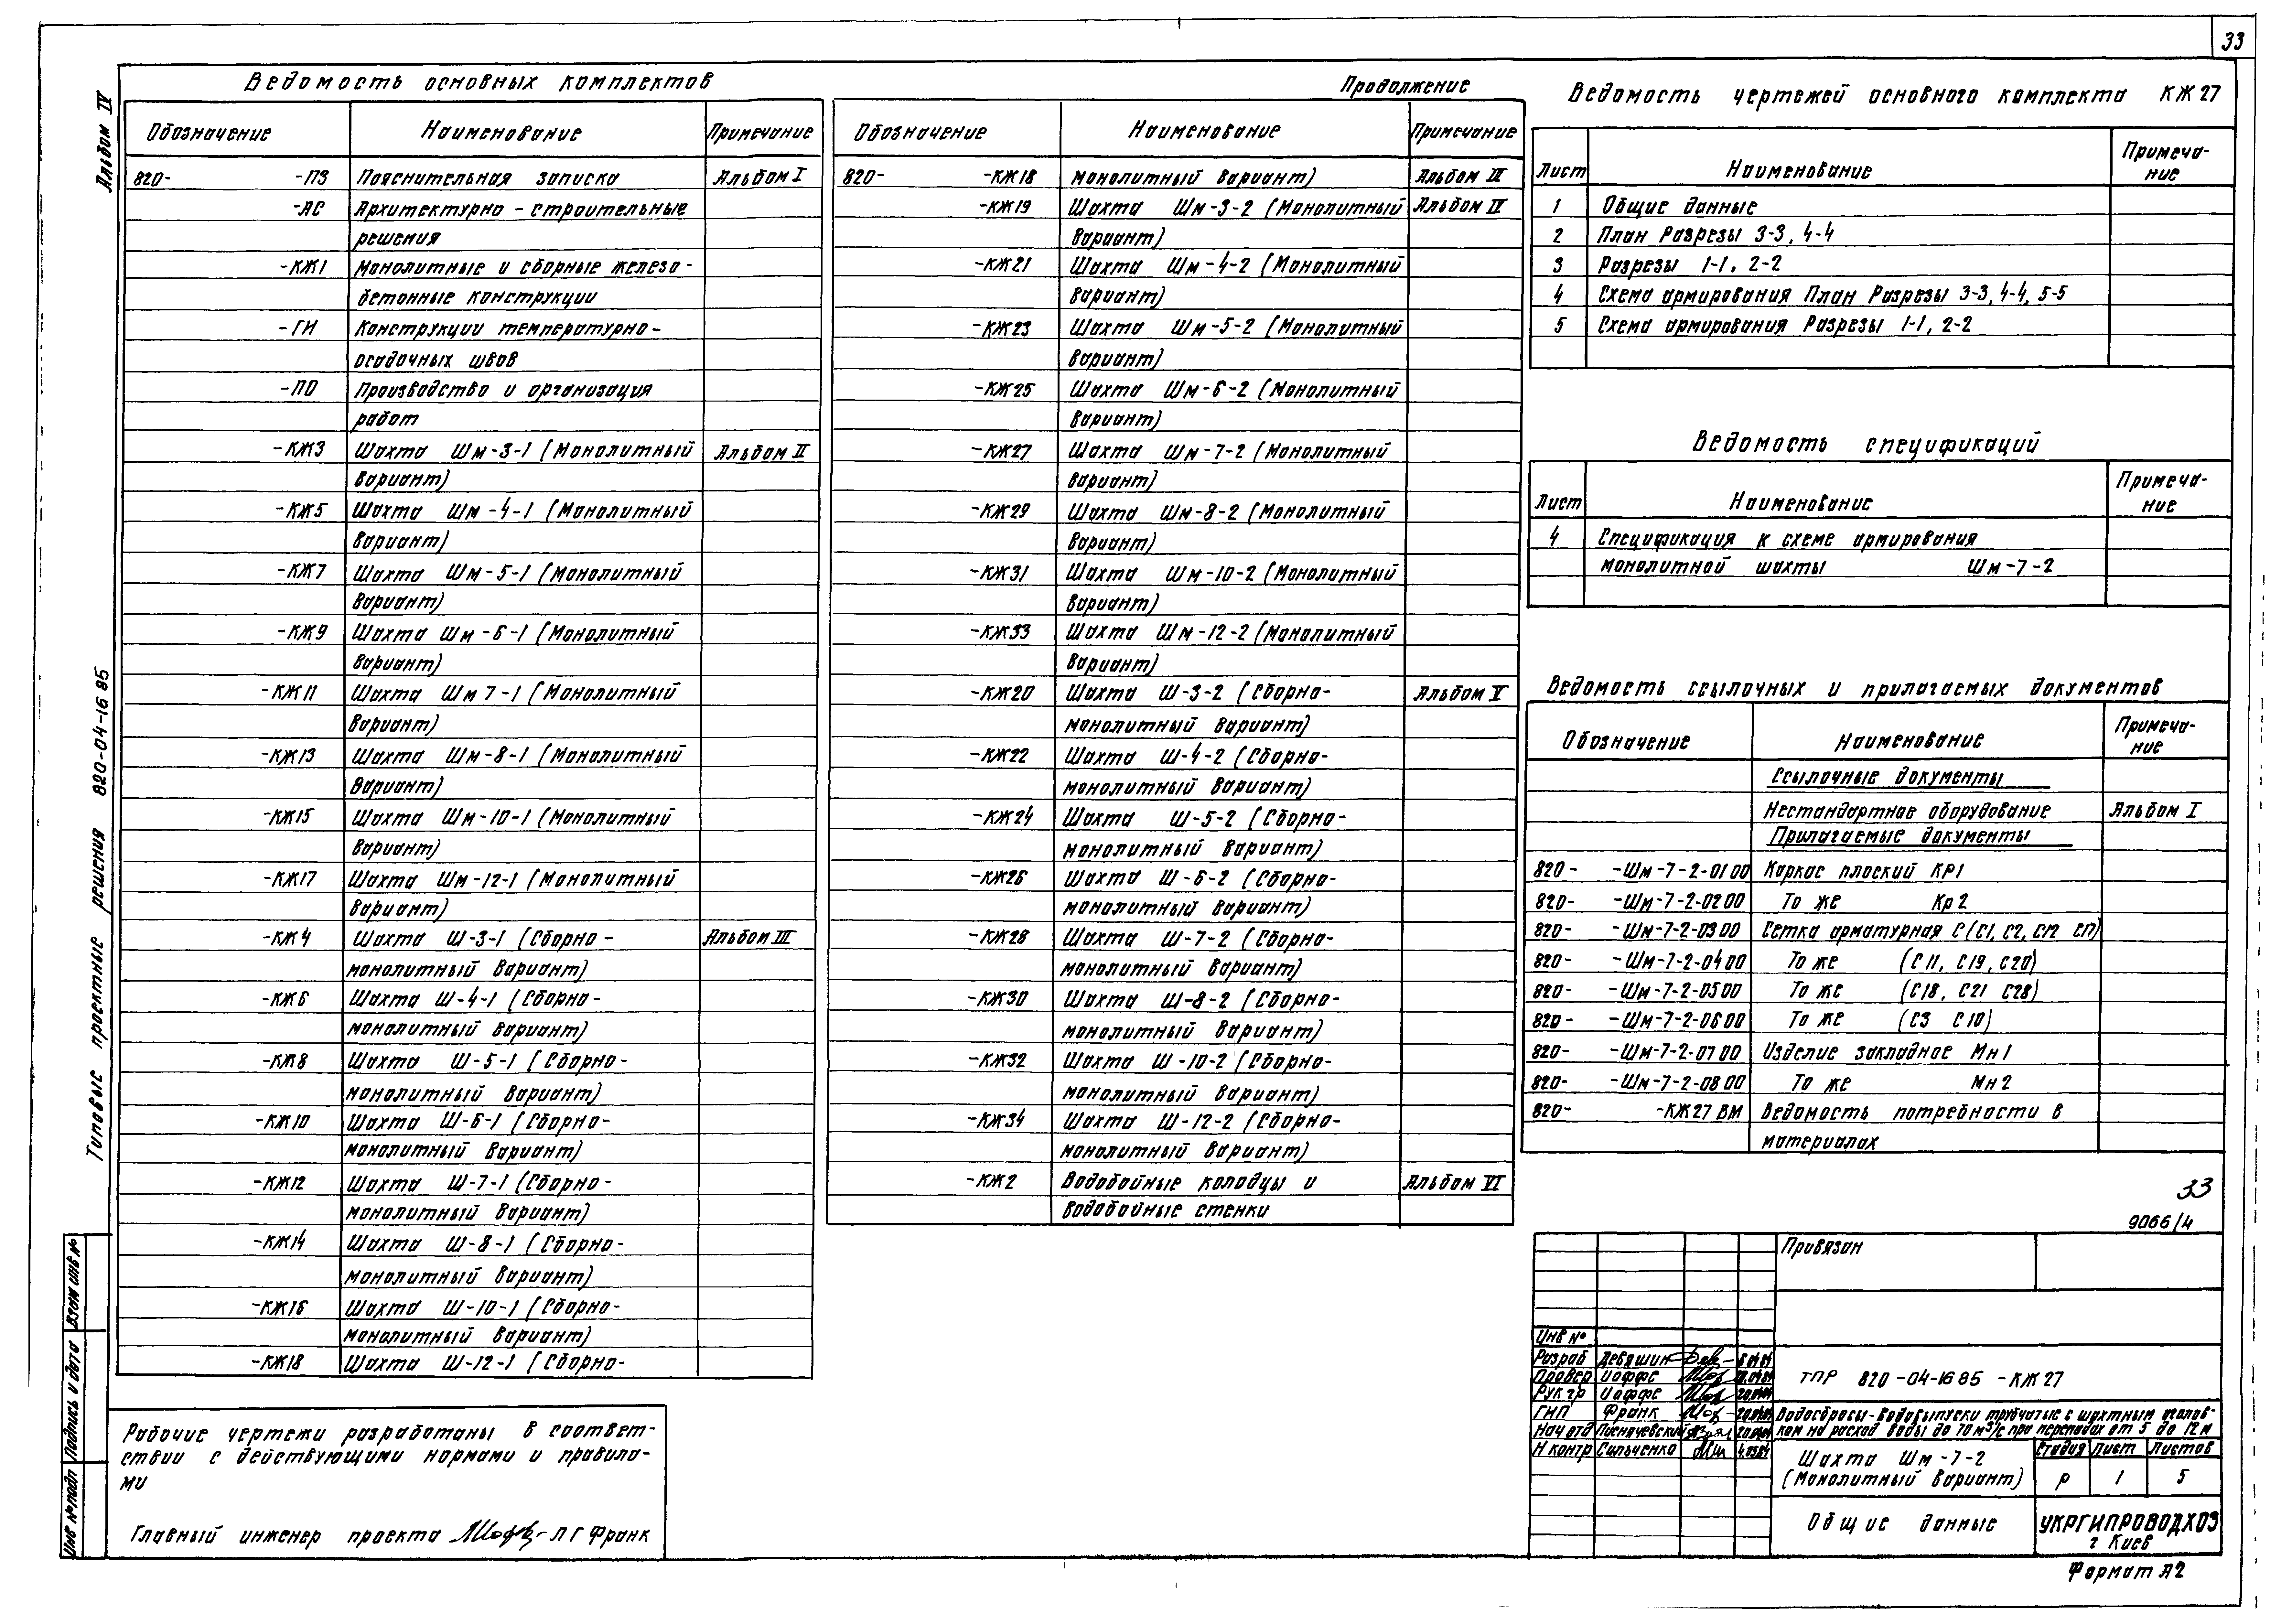 33
Альбом IV
Типовые проектные решения 820-04-16 85
Взам инв №
Подпись и дата
Инв № подл
Ведомость основных комплектов
Обозначение Наименование Примечание
820- -ПЗ Пояснительная записка Альбом I
-АС Архитектурно - строительные
решения
-КЖ1 Монолитные и сборные железо-
бетонные конструкции
-ГИ Конструкции температурно-
осадочных швов
-ПО Производство и организация
работ
-КЖ3 Шахта Шм-3-1 (Монолитный Альбом II
вариант)
-КЖ5 Шахта Шм-4-1 (Монолитный
вариант)
-КЖ7 Шахта Шм-5-1 (Монолитный
вариант)
-КЖ9 Шахта Шм-6-1 (Монолитный
вариант)
-КЖ11 Шахта Шм 7-1 (Монолитный
вариант)
-КЖ13 Шахта Шм-8-1 (Монолитный
вариант)
-КЖ15 Шахта Шм-10-1 (Монолитный
вариант)
-КЖ17 Шахта Шм-12-1 (Монолитный
вариант)
-КЖ4 Шахта Ш-3-1 (Сборно- Альбом III
монолитный вариант)
-КЖ6 Шахта Ш-4-1 (Сборно-
монолитный вариант)
-КЖ8 Шахта Ш-5-1 (Сборно-
монолитный вариант)
-КЖ10 Шахта Ш-6-1 (Сборно-
монолитный вариант)
-КЖ12 Шахта Ш-7-1 (Сборно-
монолитный вариант)
-КЖ14 Шахта Ш-8-1 (Сборно-
монолитный вариант)
-КЖ16 Шахта Ш-10-1 (Сборно-
монолитный вариант)
-КЖ18 Шахта Ш-12-1 (Сборно-
Продолжение
Обозначение Наименование Примечание
820- -КЖ18 монолитный вариант) Альбом III
-КЖ19 Шахта Шм-3-2 (Монолитный Альбом IV
вариант)
-КЖ21 Шахта Шм-4-2 (Монолитный
вариант)
-КЖ23 Шахта Шм-5-2 (Монолитный
вариант)
-КЖ25 Шахта Шм-6-2 (Монолитный
вариант)
-КЖ27 Шахта Шм-7-2 (Монолитный
вариант)
-КЖ29 Шахта Шм-8-2 (Монолитный
вариант)
-КЖ31 Шахта Шм-10-2 (Монолитный
вариант)
-КЖ33 Шахта Шм-12-2 (Монолитный
вариант)
-КЖ20 Шахта Ш-3-2 (Сборно- Альбом V
монолитный вариант)
-КЖ22 Шахта Ш-4-2 (Сборно-
монолитный вариант)
-КЖ24 Шахта Ш-5-2 (Сборно-
монолитный вариант)
-КЖ26 Шахта Ш-6-2 (Сборно-
монолитный вариант)
-КЖ28 Шахта Ш-7-2 (Сборно-
монолитный вариант)
-КЖ30 Шахта Ш-8-2 (Сборно-
монолитный вариант)
-КЖ32 Шахта Ш-10-2 (Сборно-
монолитный вариант)
-КЖ34 Шахта Ш-12-2 (Сборно-
монолитный вариант)
-КЖ2 Водобойные колодцы и Альбом VI
водобойные стенки
Ведомость чертежей основного комплекта КЖ27
Лист Наименование Примеча-
ние
1 Общие данные
2 План Разрезы 3-3, 4-4
3 Разрезы 1-1, 2-2
4 Схема армирования План Разрезы 3-3, 4-4, 5-5
5 Схема армирования Разрезы 1-1, 2-2
Ведомость спецификаций
Лист Наименование Примеча-
ние
4 Спецификация к схеме армирования
монолитной шахты Шм-7-2
Ведомость ссылочных и прилагаемых документов
Обозначение Наименование Примеча-
ние
Ссылочные документы
Нестандартное оборудование Альбом I
Прилагаемые документы
820- -Шм-7-2-01 00 Каркас плоский КР1
820- -Шм-7-2-02 00 То же Кр2
820- -Шм-7-2-03 00 Сетка арматурная С (С1, С2, С12 С17)
820- -Шм-7-2-04 00 То же (С11, С19, С20)
820- -Шм-7-2-05 00 То же (С18, С21 С28)
820- -Шм-7-2-06 00 То же (С3 С10)
820- -Шм-7-2-07 00 Изделие закладное Мн1
820- -Шм-7-2-08 00 То же Мн2
820- -КЖ27 ВМ Ведомость потребности в
материалах
33
9066/4
Рабочие чертежи разработаны в соответ-
ствии с действующими нормами и правила-
ми
Главный инженер проекта Л Г Франк
Привязан
Инв №
Разраб Девяшин
Провер Иоффе
Рук гр Иоффе
ГИП Франк
Нач отд
Н контр Сильченко
ТПР 820-04-16 85 -КЖ27
Водосбросы-водовыпуски трубчатые с шахтным оголов-
ком на расход воды до 70 м³/с при перепадах от 5 до 12 м
Шахта Шм-7-2
(Монолитный вариант)
Стадия Лист Листов
Р 1 5
Общие данные
УКРГИПРОВОДХОЗ
г Киев
Формат А2